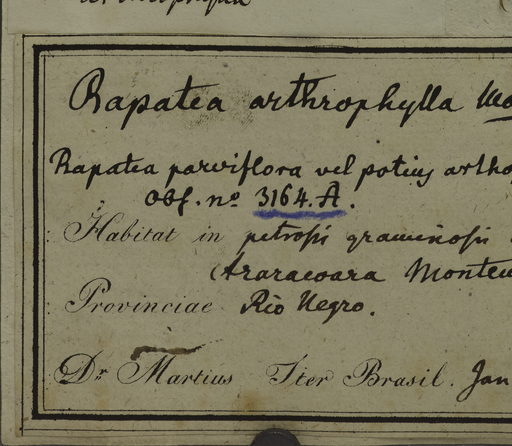 Rapatea arthrophylla
Rapatea parviflora vel potius
Obs. no 3164. A.
Habitat in petrosis graminosis
Araracoara
Provinciae Rio Negro.
Dr Martius Iter Brasil. Jan